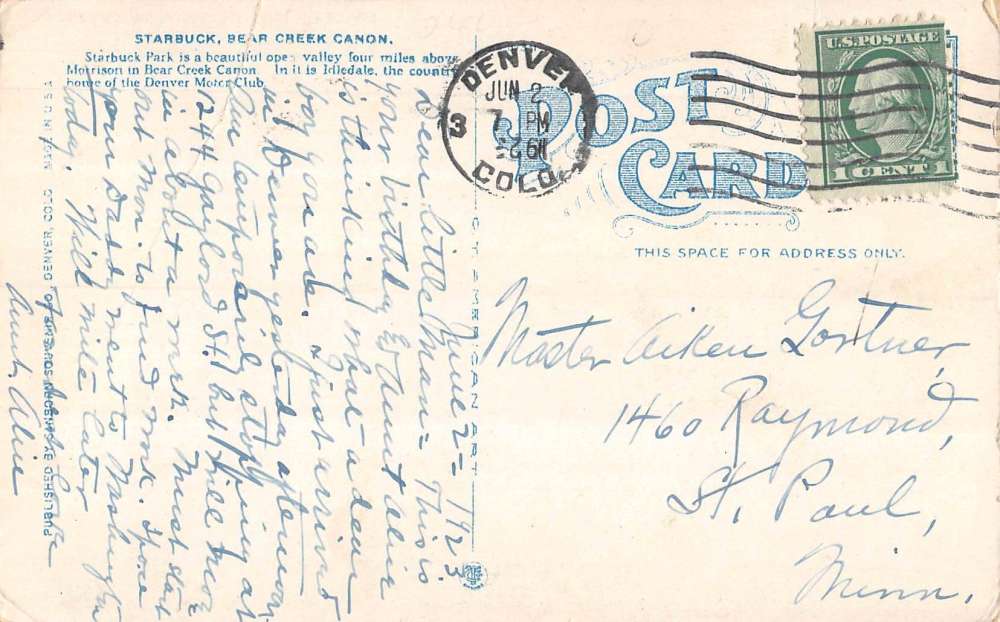 STARBUCK, BEAR CREEK CANON.
Starbuck Park is a beautiful open valley four miles above
Morrison in Bear Creek Canon. In it is Idledale, the country
home of the Denver Motor Club.
DENVER
JUN 2
7 PM
3
COLO.
U.S. POSTAGE
1 CENT 1
POST
CARD
THIS SPACE FOR ADDRESS ONLY.
Master Aiken Gortner,
1460 Raymond,
St. Paul,
Minn.
June 2 - 1923
Dear little Man - This is
your birthday & Aunt Alice
is thinking what a dear
boy you are. I just arrived
in Denver yesterday afternoon.
Am temporarily stopping at
244 Gaylord St. but will move
in about a week. Must start
out Mon. to find work. I suppose
your Daddy went to Washington
today. Will write later
Love
Aunt Alice
C. T. AMERICAN ART
PUBLISHED BY SANBORN SOUVENIR CO., DENVER, COLO. MADE IN U.S.A.